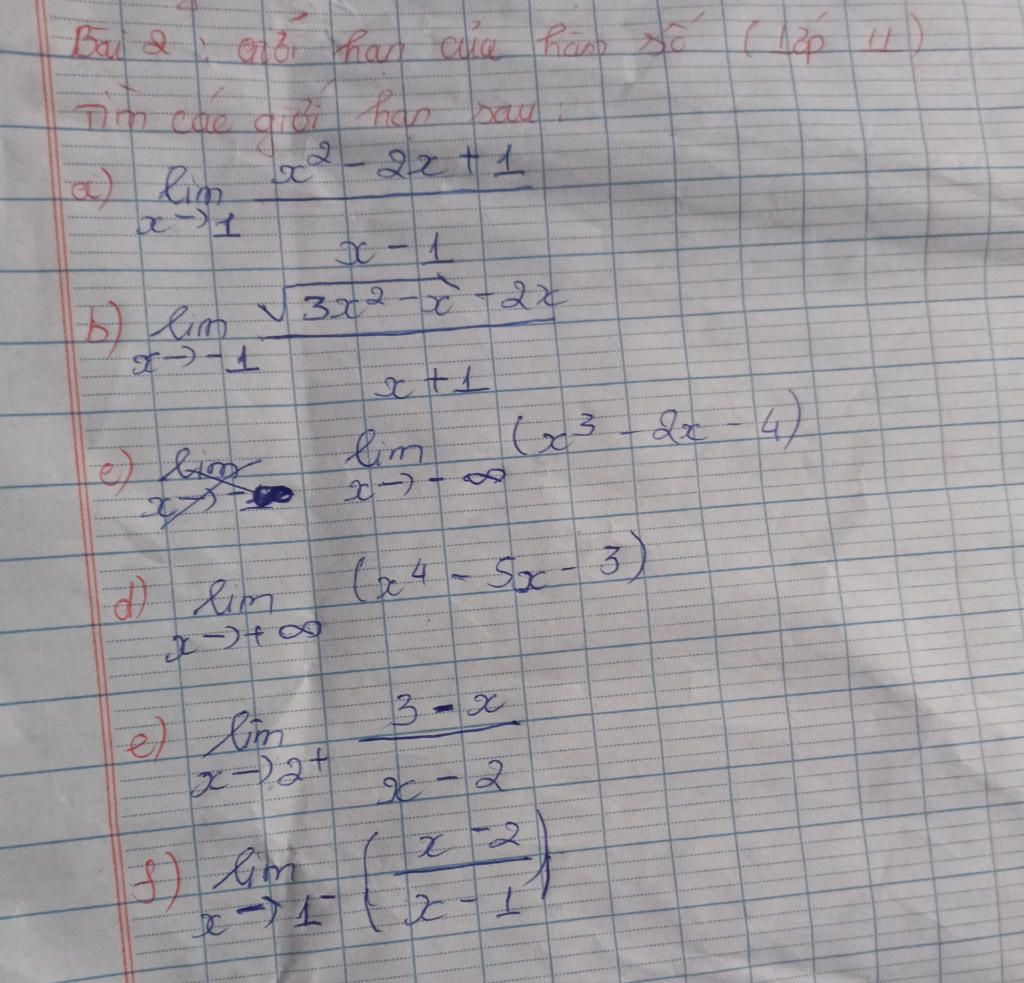 Bài 2 : Giới hạn của hàm số (lớp 11)
Tìm các giới hạn sau :
a) lim x→1 (x² - 2x + 1) / (x - 1)
b) lim x→-1 (√(3x² - x) - 2x) / (x + 1)
c) lim x→-∞ (x³ - 2x - 4)
d) lim x→+∞ (x⁴ - 5x - 3)
e) lim x→2⁺ (3 - x) / (x - 2)
f) lim x→1⁻ ((x - 2) / (x - 1))